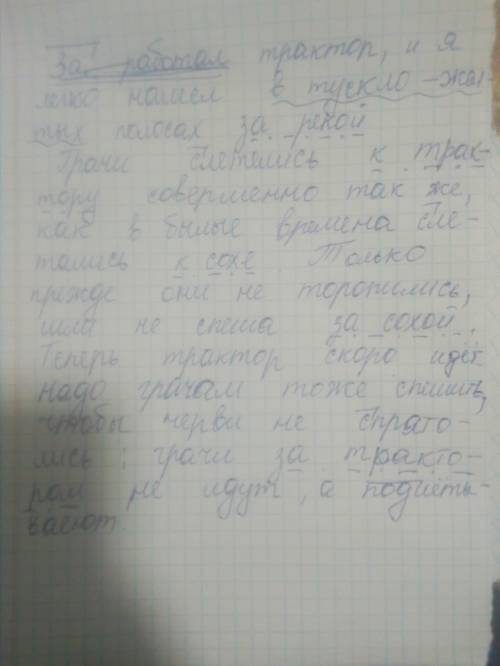 За работал трактор, и я
легко нашел в тускло-жел-
тых полосах за рекой
Грачи слетелись к трак-
тору соверменно так же,
как в былые времена сле-
тались к сохе. Только
прежде они не торопились,
шла не спеша за сохой.
Теперь трактор скоро идёт
надо грачам тоже спешить,
чтобы черви не спрято-
лись: грачи за тракто-
ром не идут, а подлеты-
вают